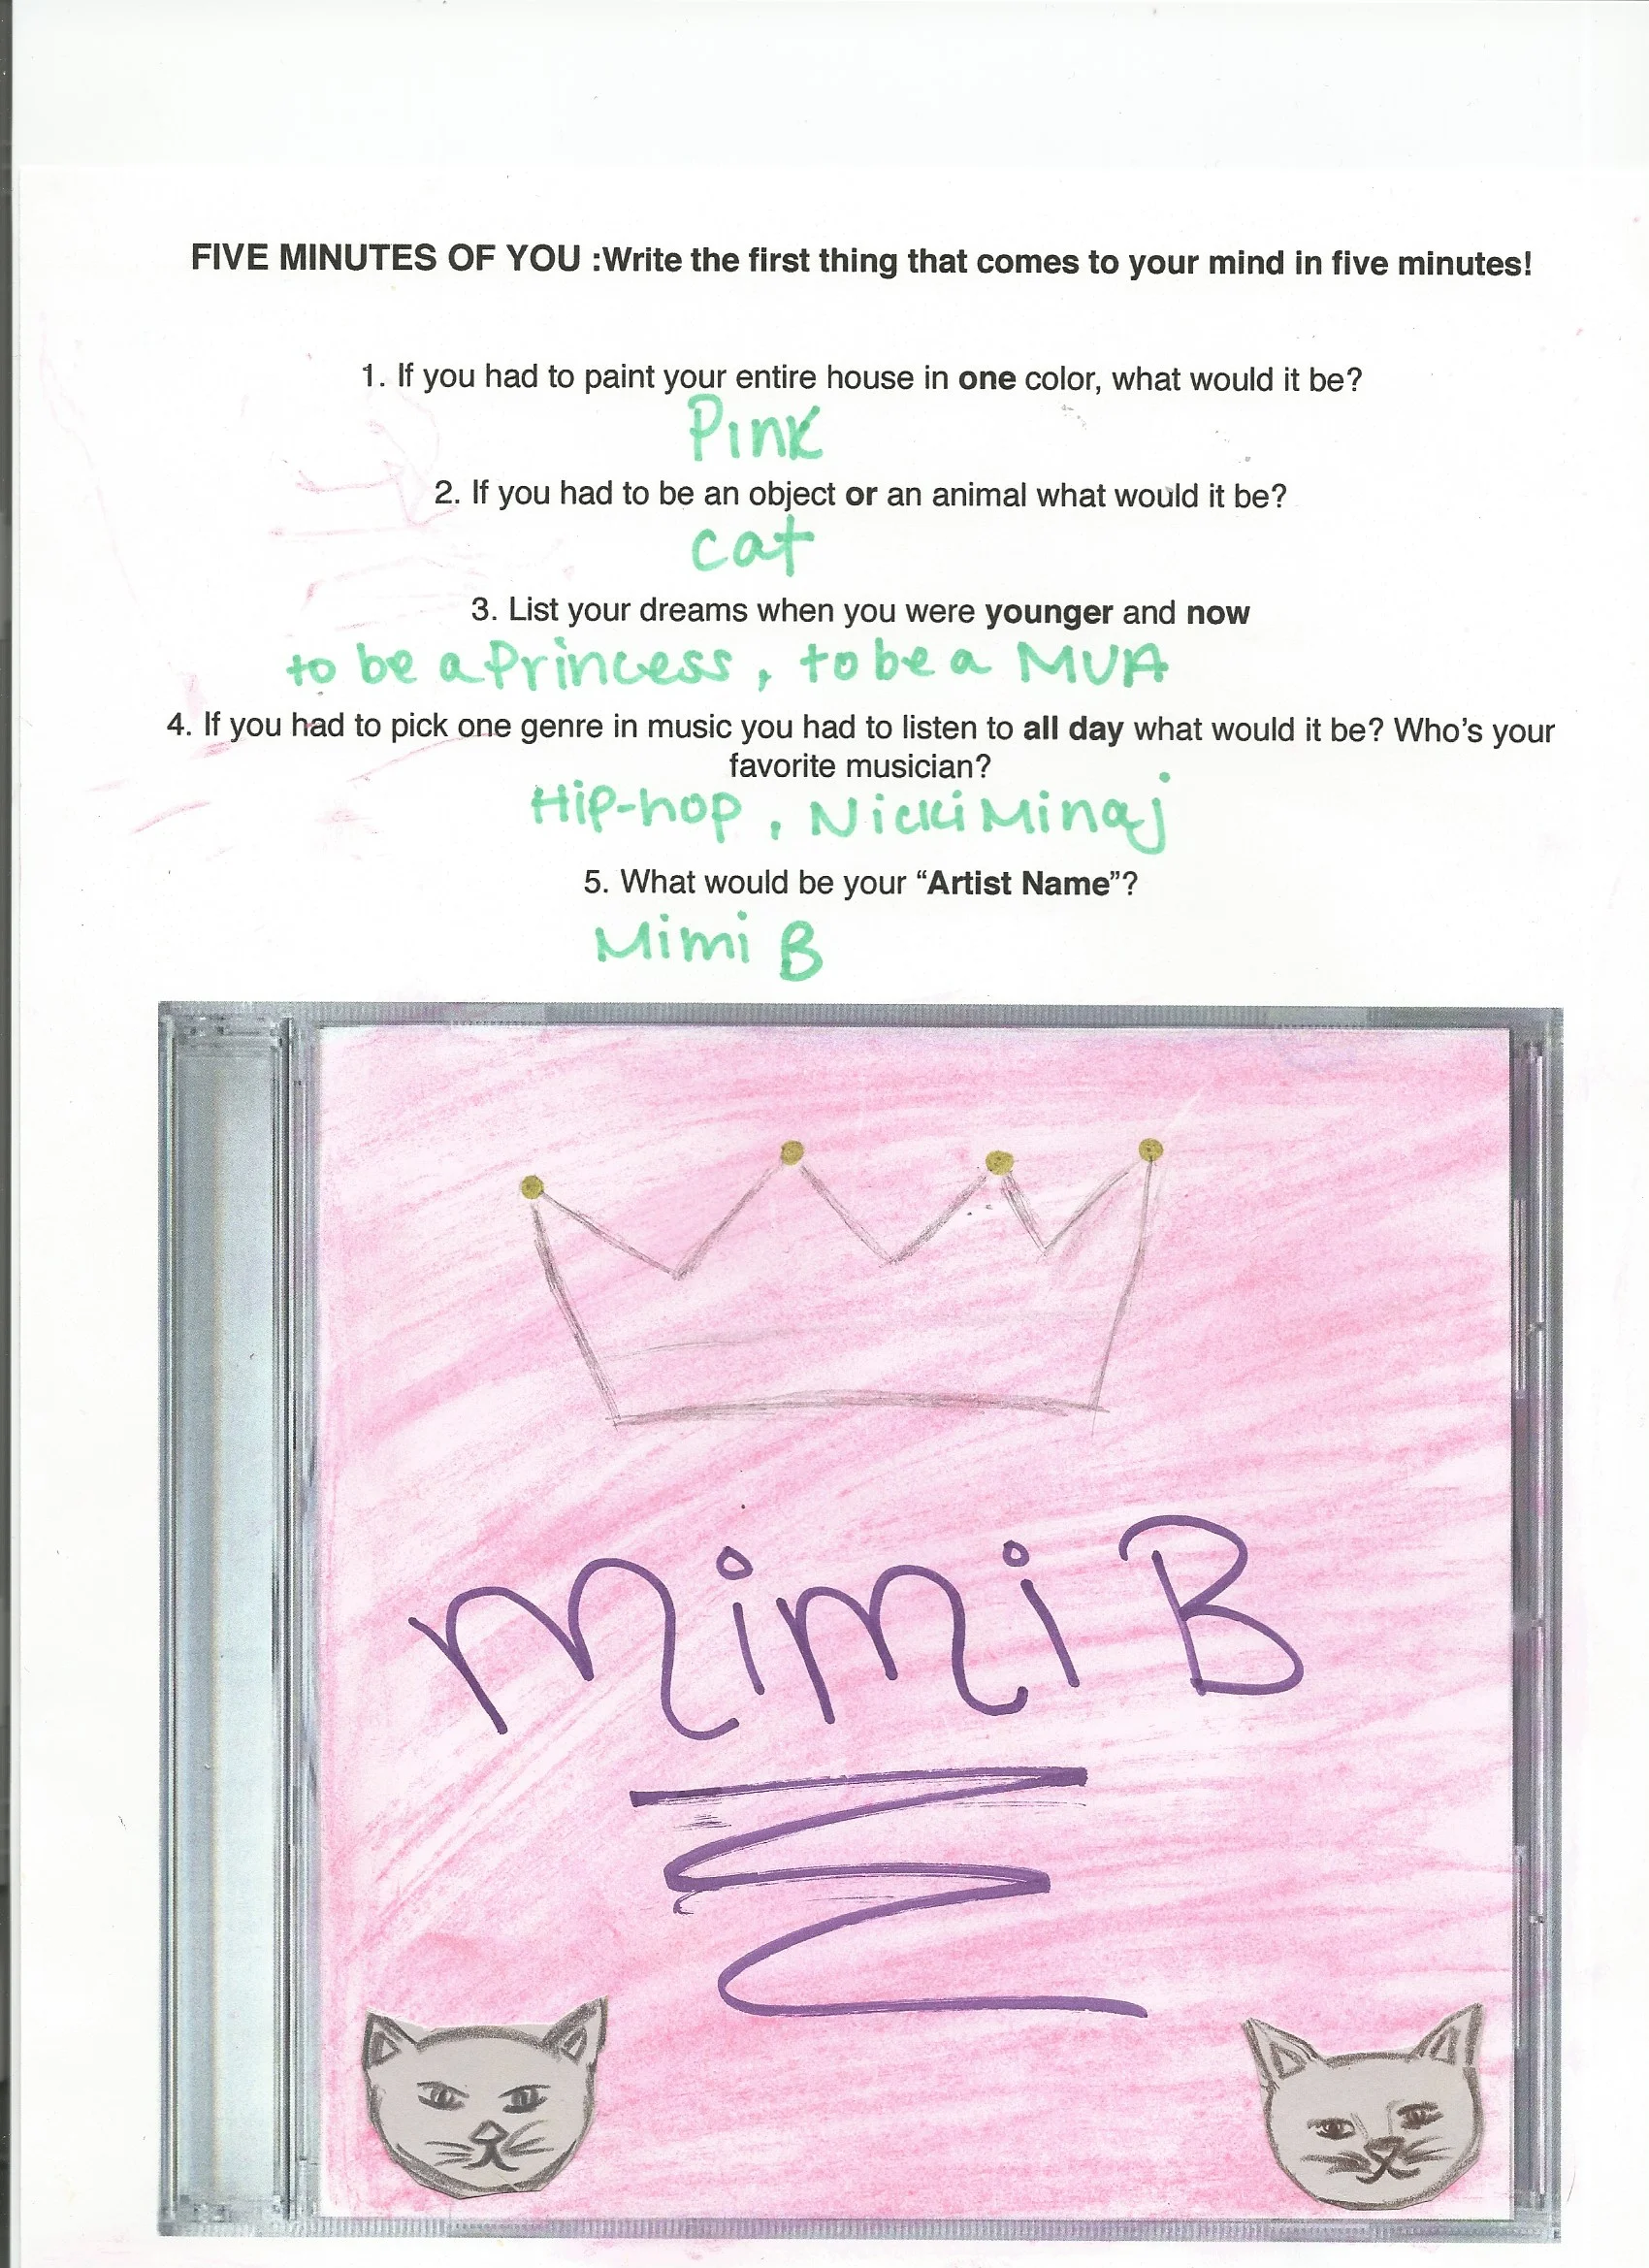 FIVE MINUTES OF YOU :Write the first thing that comes to your mind in five minutes!
1. If you had to paint your entire house in one color, what would it be?
Pink
2. If you had to be an object or an animal what would it be?
cat
3. List your dreams when you were younger and now
to be a Princess, to be a MUA
4. If you had to pick one genre in music you had to listen to all day what would it be? Who's your
favorite musician?
Hip-hop, Nicki Minaj
5. What would be your “Artist Name”?
Mimi B
mimi B